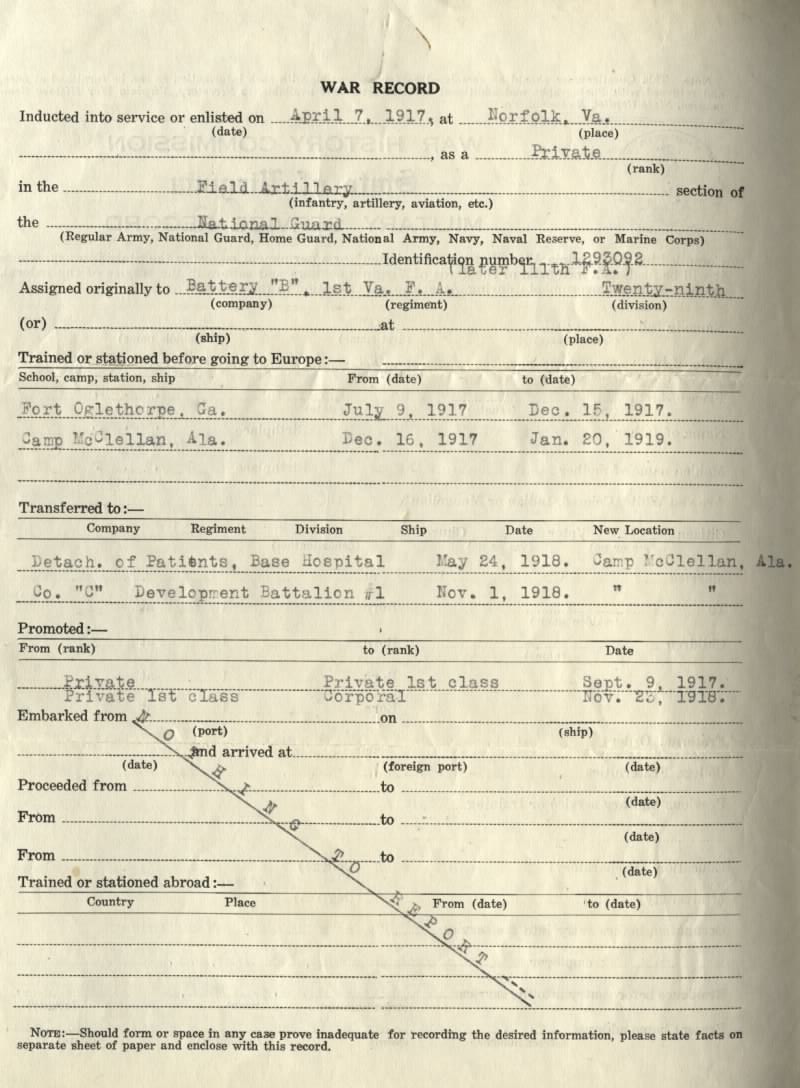 WAR RECORD
Inducted into service or enlisted on April 7, 1917, at Norfolk, Va.
(date) (place)
, as a Private
(rank)
in the Field Artillery section of
(infantry, artillery, aviation, etc.)
the National Guard
(Regular Army, National Guard, Home Guard, National Army, Navy, Naval Reserve, or Marine Corps)
Identification number 1293092
(later 111th F.A.)
Assigned originally to Battery "B", 1st Va. F. A. Twenty-ninth
(company) (regiment) (division)
(or) at
(ship) (place)
Trained or stationed before going to Europe:—
School, camp, station, ship From (date) to (date)
Fort Oglethorpe, Ga. July 9, 1917 Dec. 15, 1917.
Camp McClellan, Ala. Dec. 16, 1917 Jan. 20, 1919.
Transferred to:—
Company Regiment Division Ship Date New Location
Detach. of Patients, Base Hospital May 24, 1918. Camp McClellan, Ala.
Co. "C" Development Battalion #1 Nov. 1, 1918. " "
Promoted:—
From (rank) to (rank) Date
Private Private 1st class Sept. 9, 1917.
Private 1st class Corporal Nov. 1918.
Embarked from on
(port) (ship)
and arrived at
(date) (foreign port) (date)
Proceeded from to
(date)
From to
(date)
From to
(date)
NOTHING TO REPORT
Trained or stationed abroad:—
Country Place From (date) to (date)
NOTE:—Should form or space in any case prove inadequate for recording the desired information, please state facts on
separate sheet of paper and enclose with this record.